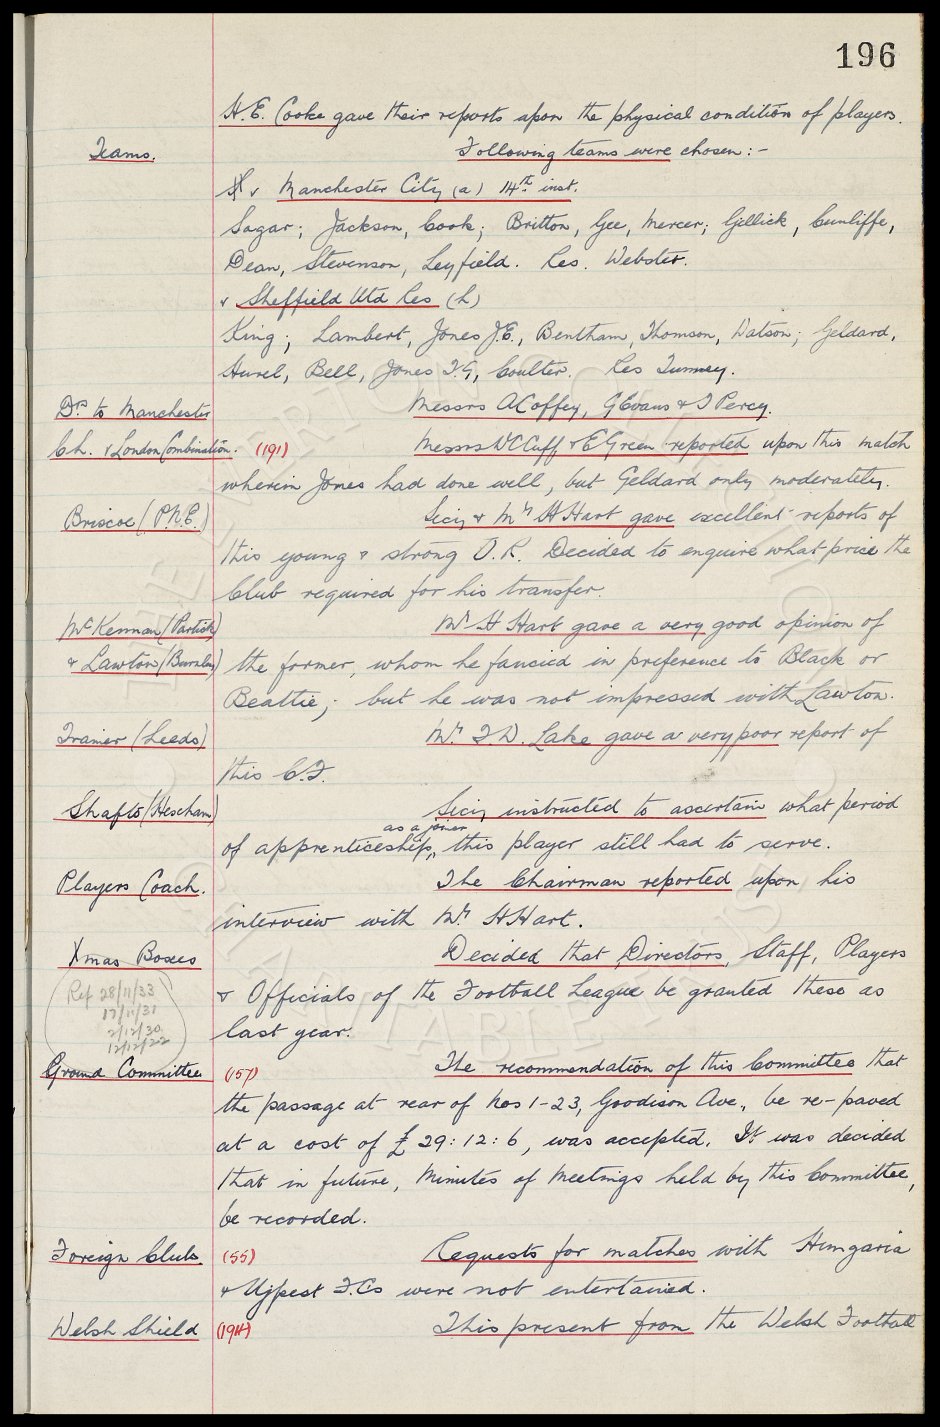 196
H. E. Cooke gave their reports upon the physical condition of players.
Teams. Following teams were chosen:-
X v Manchester City (a) 14th inst.
Sagar; Jackson, Cook; Britton, Gee, Mercer; Gillick, Cunliffe,
Dean, Stevenson, Leyfield. Res. Webster.
v Sheffield Utd Res (h)
King; Lambert, Jones J.E., Bentham, Thomson, Watson; Geldard,
Hurel, Bell, Jones T.G, Coulter. Res Tunney.
Drs to Manchester Messrs A Coffey, G Evans & J Percy.
Ch. v London Combination. (191) Messrs W C Cuff & E Green reported upon this match
wherein Jones had done well, but Geldard only moderately.
Briscoe (P.N.E.) Secy & Mr H Hart gave excellent reports of
this young & strong O.R. Decided to enquire what price the
Club required for his transfer.
McKennan (Partick) Mr H Hart gave a very good opinion of
& Lawton (Burnley) the former, whom he fancied in preference to Black or
Beattie; but he was not impressed with Lawton.
Trainer (Leeds) Mr. T. D. Lake gave a very poor report of
this C.F.
Shafto (Hexham) Secy instructed to ascertain what period
as a joiner
of apprenticeship, this player still had to serve.
Players Coach. The Chairman reported upon his
interview with Mr H Hart.
Xmas Boxes Decided that Directors, Staff, Players
Ref 28/11/33 & Officials of the Football League be granted these as
17/11/31
2/12/30 last year.
12/12/22
Ground Committee (157) The recommendation of this Committee that
the passage at rear of Nos 1-23, Goodison Ave., be re-paved
at a cost of £29:12:6, was accepted. It was decided
that in future, Minutes of Meetings held by this Committee,
be recorded.
Foreign Clubs (55) Requests for matches with Hungaria
& Ujpest F.Cs were not entertained.
Welsh Shield (194) This present from the Welsh Football